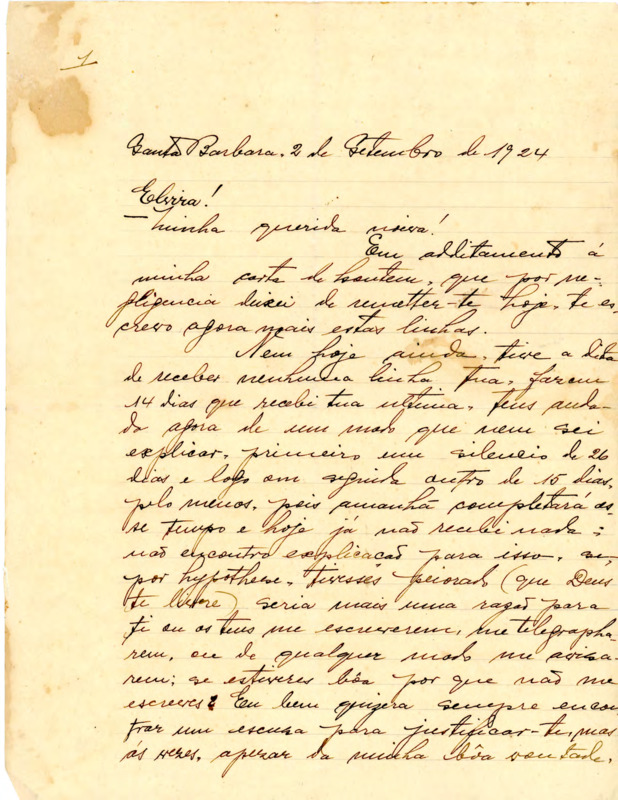 1
Santa Barbara, 2 de Setembro de 1924
Elvira!
Minha querida noiva!
Em additamento á
minha carta de hontem, que por ne-
gligencia deixei de remetter-te hoje, te es-
crevo agora mais estas linhas.
Nem hoje ainda, tive a dita
de receber nenhuma linha tua, fazem
14 dias que recebi tua ultima, tens anda-
do agora de um modo que nem sei
explicar, primeiro um silencio de 26
dias e logo em seguida outro de 15 dias,
pelo menos, pois amanhã completará es-
se tempo e hoje já não recebi nada;
não encontro explicação para isso, se,
por hypothese, tivesses peiorado (que Deus
te livre) seria mais uma razão para
ti ou os teus me escreverem, me telegrapha-
rem, ou de qualquer modo me avisa-
rem; se estiveres bôa por que não me
escreves? Eu bem quizera sempre encon-
trar um escuza para justificar-te, mas
ás vezes, apezar da minha bôa vontade,